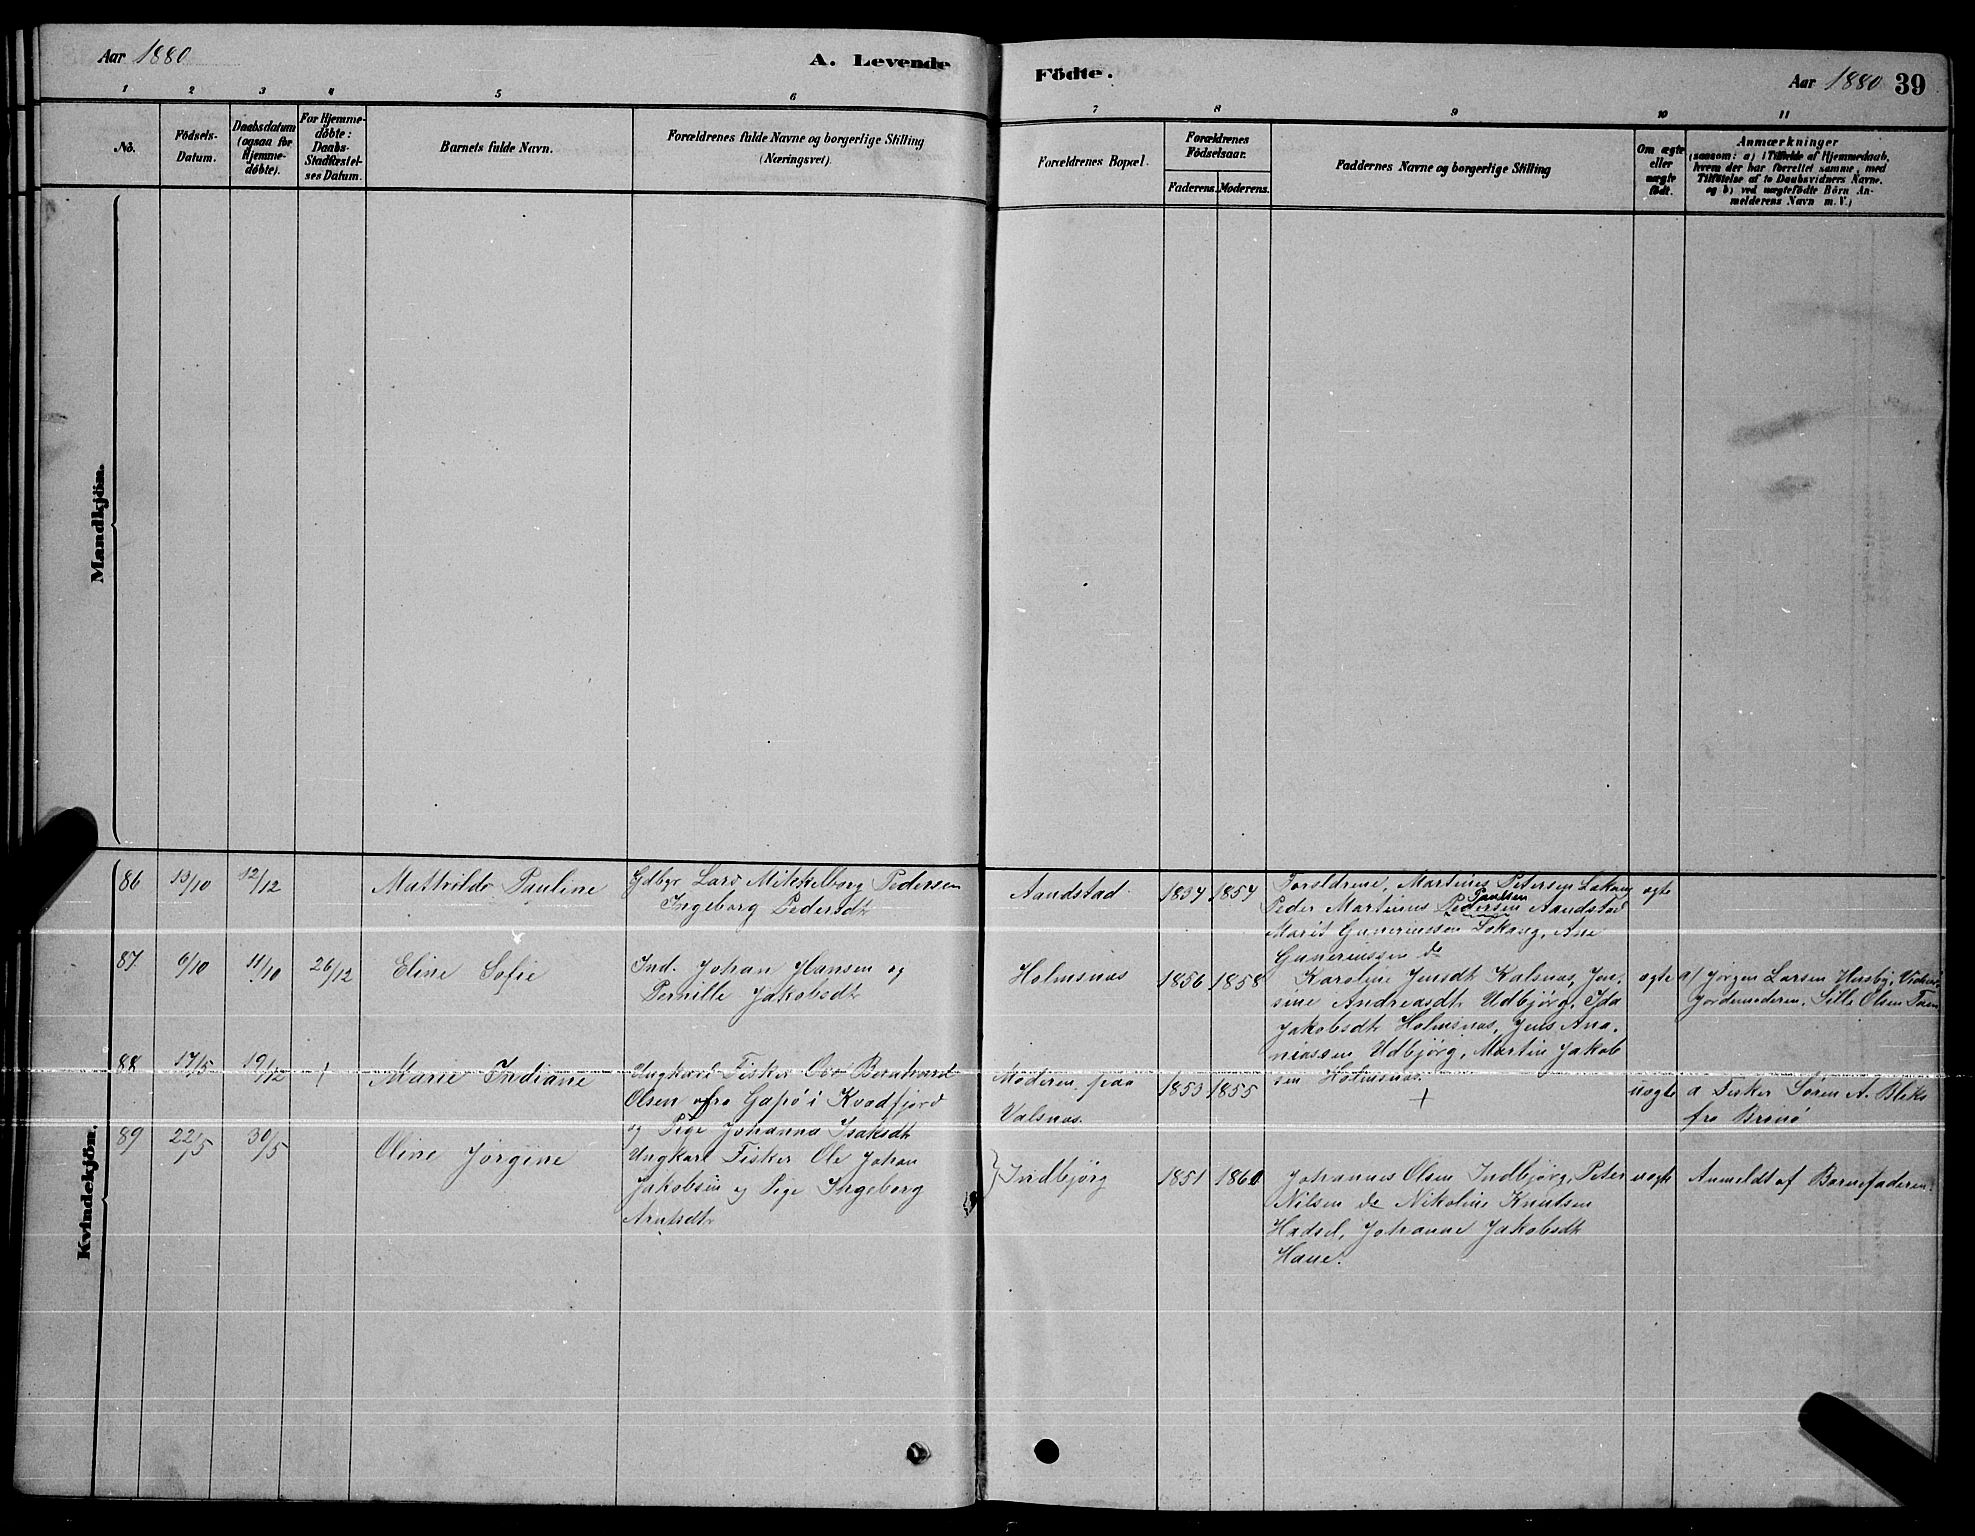 Aar 1880
A. Levende Födte.
Aar 1880 39
1 2 3 4 5 6 7 8 9 10 11
No.
Födsels-Datum.
Daabsdatum (ogsaa for Hjemme-døbte).
For Hjemme-døbte: Daabs-Stadfæstel-ses Datum.
Barnets fulde Navn.
Forældrenes fulde Navne og borgerlige Stilling (Næringsvei).
Forældrenes Bopæl.
Forældrenes Födselsaar.
Faderens. Moderens.
Faddernes Navne og borgerlige Stilling
Om ægte eller uægte født.
Anmærkninger
(saasom: a) i Tilfælde af Hjemmedaab, hvem der har forrettet samme, med Tilføielse af to Daabsvidners Navne, og b) ved uægtefødte Börn An-melderens Navn m. V.)
Mandkjön.
Kvindekjön.
86 13/10 12/12 Mathilde Pauline
Gdbr Lars Mikkelborg Pedersen
Ingeborg Pedersdt
Aandstad 1834 1854
Forældrene, Martines Petersen
Paulsen
Peder Martinus Pedersen Aandstad
Marit Guneriussen Lokang, Ane
Guneriussen do
ægte
87 6/10 11/10 26/12 Eline Sofie
Ind. Johan Hansen og
Pernille Jakobsdt
Holmsnæs 1856 1858
Karoline Jensdt Kalsnæs, Jen-
sine Andreasdt Udbjørg, Ida
Jakobsdt Holmsnæs, Jens Ana-
niassen Udbjørg, Martin Jakob
sen Holmsnæs.
ægte
a/ Jørgen Larsen
Jordemoderen, Olsen
88 17/5 19/12 + Marie Indiane
Ungkarl Fisker Bernhard
Olsen fra Gapø i Kvædfjord
og Pige Johanna Isaksdt
Moderen paa
Valsnæs.
1853 1855
+
uægte
a Fisker Søren A.
fra
89 22/5 30/5 Oline Jørgine
Ungkarl Fisker Ole Johan
Jakobsen og Pige Ingeborg
Arntsdt
Indbjörg 1851 1860
Johannes Olsen Indbjörg, Peter
Nilsen do Nikoline Knutsen
Hadsel, Johanne Jakobsdt
uægte
Anmeldt af Barnefaderen.